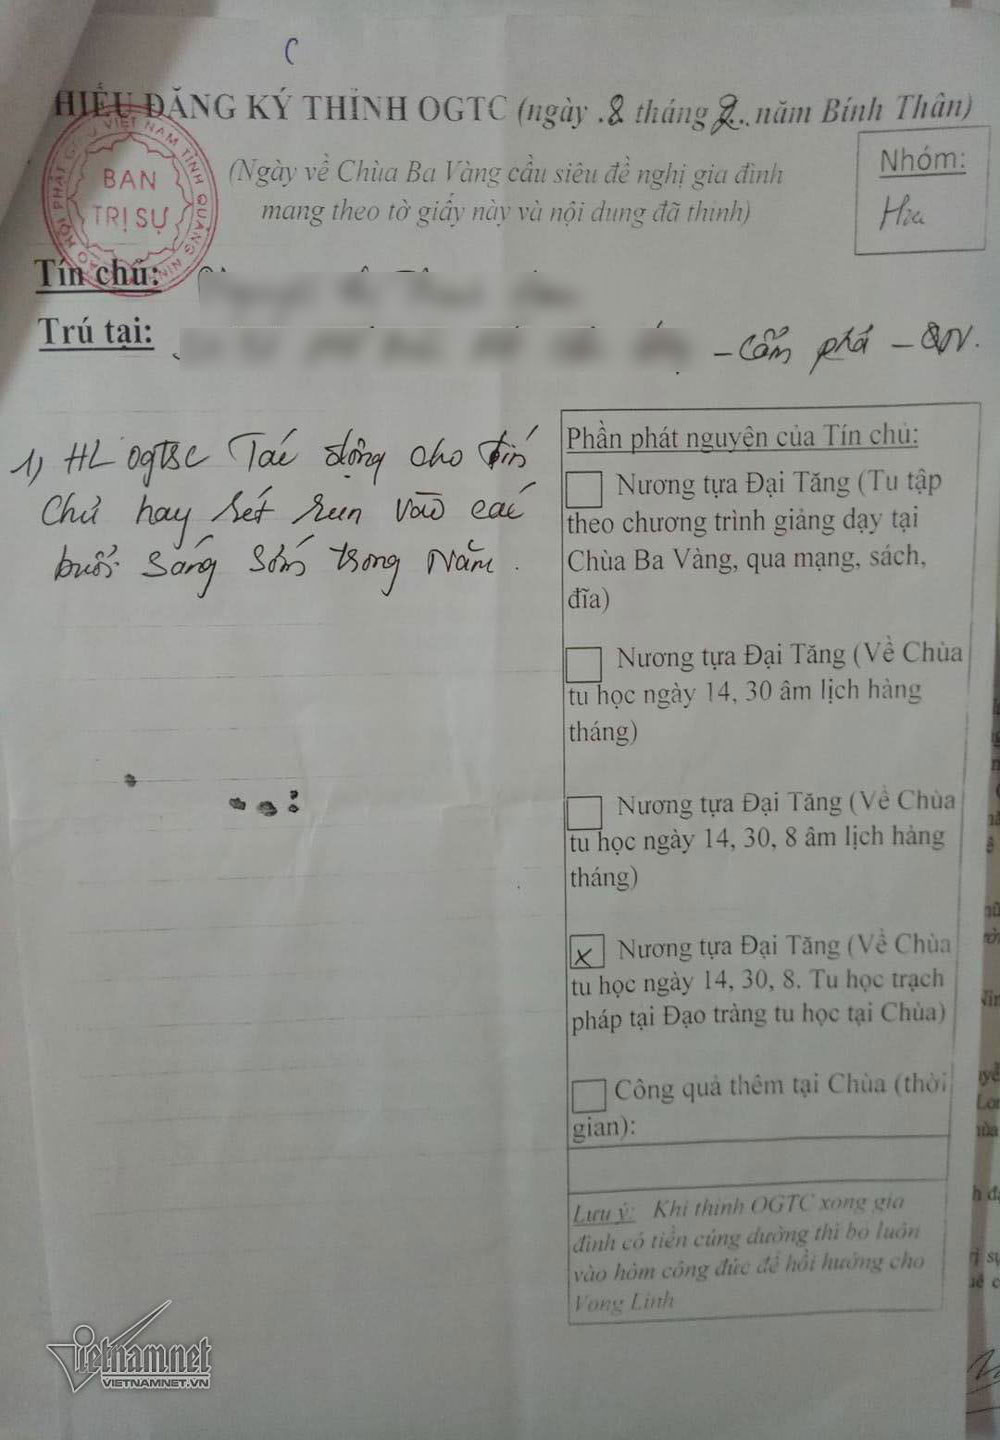 HIẾU ĐĂNG KÝ THỈNH OGTC (ngày .8 tháng 2.. năm Bính Thân)
(Ngày về Chùa Ba Vàng cầu siêu đề nghị gia đình
mang theo tờ giấy này và nội dung đã thỉnh)
Nhóm:
BAN
TRỊ SỰ
Tín chủ:
Trú tại: – Cẩm phả – QN.
1) HL OGTSC Tác động cho tín
Chủ hay rét run vào các
buổi sáng sớm trong Năm.
Phần phát nguyện của Tín chủ:
Nương tựa Đại Tăng (Tu tập
theo chương trình giảng dạy tại
Chùa Ba Vàng, qua mạng, sách,
đĩa)
Nương tựa Đại Tăng (Về Chùa
tu học ngày 14, 30 âm lịch hàng
tháng)
Nương tựa Đại Tăng (Về Chùa
tu học ngày 14, 30, 8 âm lịch hàng
tháng)
x Nương tựa Đại Tăng (Về Chùa
tu học ngày 14, 30, 8. Tu học trạch
pháp tại Đạo tràng tu học tại Chùa)
Công quả thêm tại Chùa (thời
gian):
Lưu ý: Khi thỉnh OGTC xong gia
đình có tiền cúng dường thì bỏ luôn
vào hòm công đức để hồi hướng cho
Vong Linh
vietnamnet
VIETNAMNET.VN